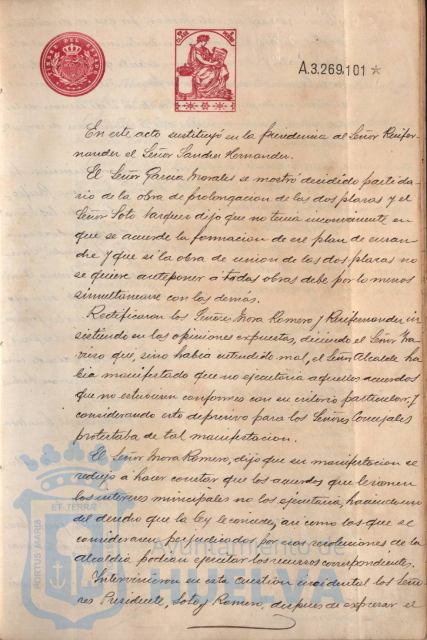 TIMBRE DEL ESTADO
A.3.269.101 *
En este acto sustituyó en la Presidencia al Señor Ruifer-
nandez el Señor Sanchez Hernandez.
El Señor Garcia Morales se mostró decidido partida-
rio de la obra de prolongacion de las dos plazas y el
Señor Soto Vazquez dijo que no tenia inconveniente en
que se acuerde la formacion de ese plan de ensan-
che y que si la obra de union de las dos plazas no
se quiere anteponer á todas obras debe por lo menos
simultanearse con las demas.
Rectificaron los Señores Mora Romero y Ruifernandez in
sistiendo en las opiniones expuestas, diciendo el Señor
que, sino habia entendido mal, el Señor Alcalde ha
bia manifestado que no ejecutaria aquellos acuerdos
que no estuviesen conformes con su criterio particular, y
considerando esto depresivo para los Señores Concejales
protestaba de tal manifestacion.
El Señor Mora Romero, dijo que su manifestacion se
redujo á hacer constar que los acuerdos que lesionen
los intereses municipales no los ejecutaria, haciendo uso
del derecho que la ley le concede, asi como los que se
consideraren perjudicados por sus resoluciones de la
alcaldia podian ejecutar los recursos correspondientes.
Intervinieron en esta cuestion incidental los Seño-
res Presidente, Soto y Romero, despues de expresar el
PORTUS MARIS ET TERRÆ
Ayuntamiento de
HUELVA